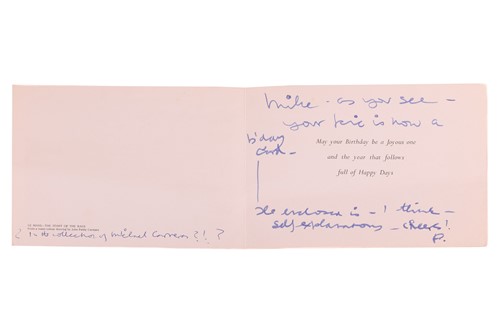 Mike - as you see -
your pic is now a
b'day
card -
May your Birthday be a Joyous one
and the year that follows
full of Happy Days
The enclosed is - I think -
self explanatory - cheers!
P.
? In the collection of Michael Carreras ?!?